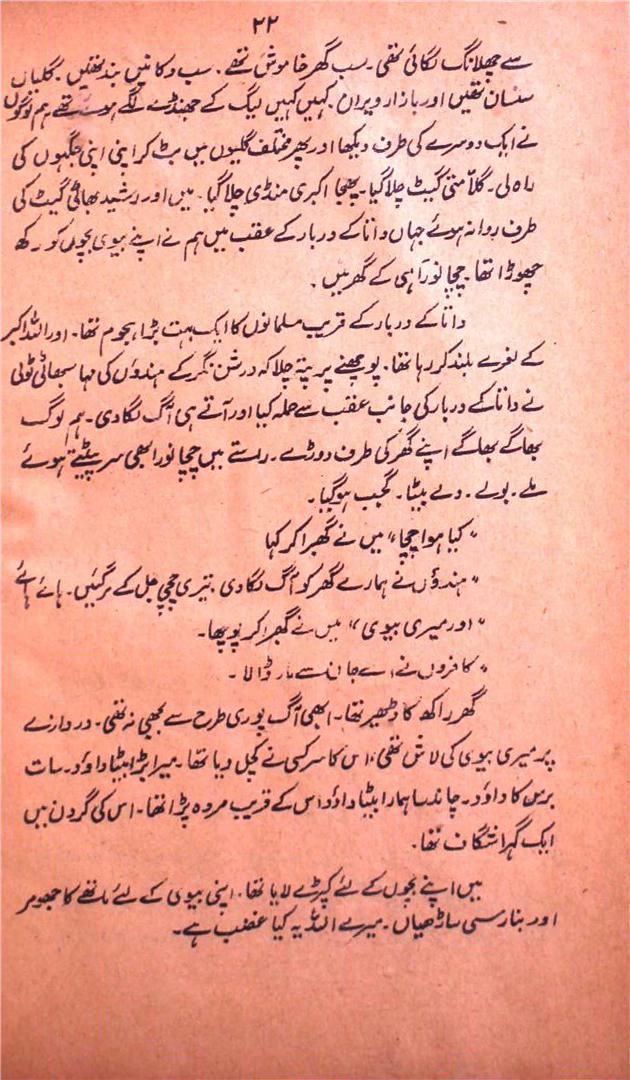 ۲۲
سے چھلانگ لگائی تھی۔ سب گھر خاموش تھے۔ سب دکانیں بند تھیں۔ گلیاں
سنسان تھیں اور بازار ویران۔ کہیں کہیں لیگ کے جھنڈے لگے ہوئے تھے ہم لوگوں
نے ایک دوسرے کی طرف دیکھا اور پھر مختلف گلیوں میں بٹ کر اپنی اپنی جگہوں کی
راہ لی۔ گلّا متی گیٹ چلا گیا۔ پھجا اکبری منڈی چلا گیا۔ میں اور رشید بھاٹی گیٹ کی
طرف روانہ ہوئے جہاں داتا کے دربار کے عقب میں ہم نے اپنے بیوی بچوں کو رکھ
چھوڑا تھا۔ چچا نور آہی کے گھر میں۔
داتا کے دربار کے قریب مسلمانوں کا ایک بہت بڑا ہجوم تھا۔ اور اللہ اکبر
کے نعرے بلند کر رہا تھا۔ پوچھنے پر پتہ چلا کہ درشن نگر کے ہندوؤں کی مہا سبھائی ٹولی
نے داتا کے دربار کی جانب عقب سے حملہ کیا اور آتے ہی آگ لگا دی۔ ہم لوگ
بھاگے بھاگے اپنے گھر کی طرف دوڑے۔ رستے میں چچا نورا بھی سر پیٹتے ہوئے
ملے۔ بولے۔ وے بیٹا۔ گجب ہو گیا۔
"کیا ہوا چچا" میں نے گھبرا کر کہا
"ہندوؤں نے ہمارے گھر کو آگ لگا دی۔ تیری چچی جل کے مر گئیں۔ ہائے ہائے
"اور میری بیوی" میں نے گھبرا کر پوچھا۔
"کافروں نے اسے جان سے مار ڈالا۔
گھر راکھ کا ڈھیر تھا۔ ابھی آگ پوری طرح سے بجھی نہ تھی۔ دروازے
پر میری بیوی کی لاش تھی، اس کا سر کسی نے کچل دیا تھا۔ میرا بڑا بیٹا داؤد۔ سات
برس کا داؤد۔ چاند سا ہمارا بیٹا داؤد اس کے قریب مردہ پڑا تھا۔ اس کی گردن میں
ایک گہرا شگاف تھا۔
میں اپنے بچوں کے لئے کپڑے لایا تھا۔ اپنی بیوی کے لئے ماتھے کا جھومر
اور بنارسی ساڑھیاں۔ میرے اللہ یہ کیا غضب ہے۔